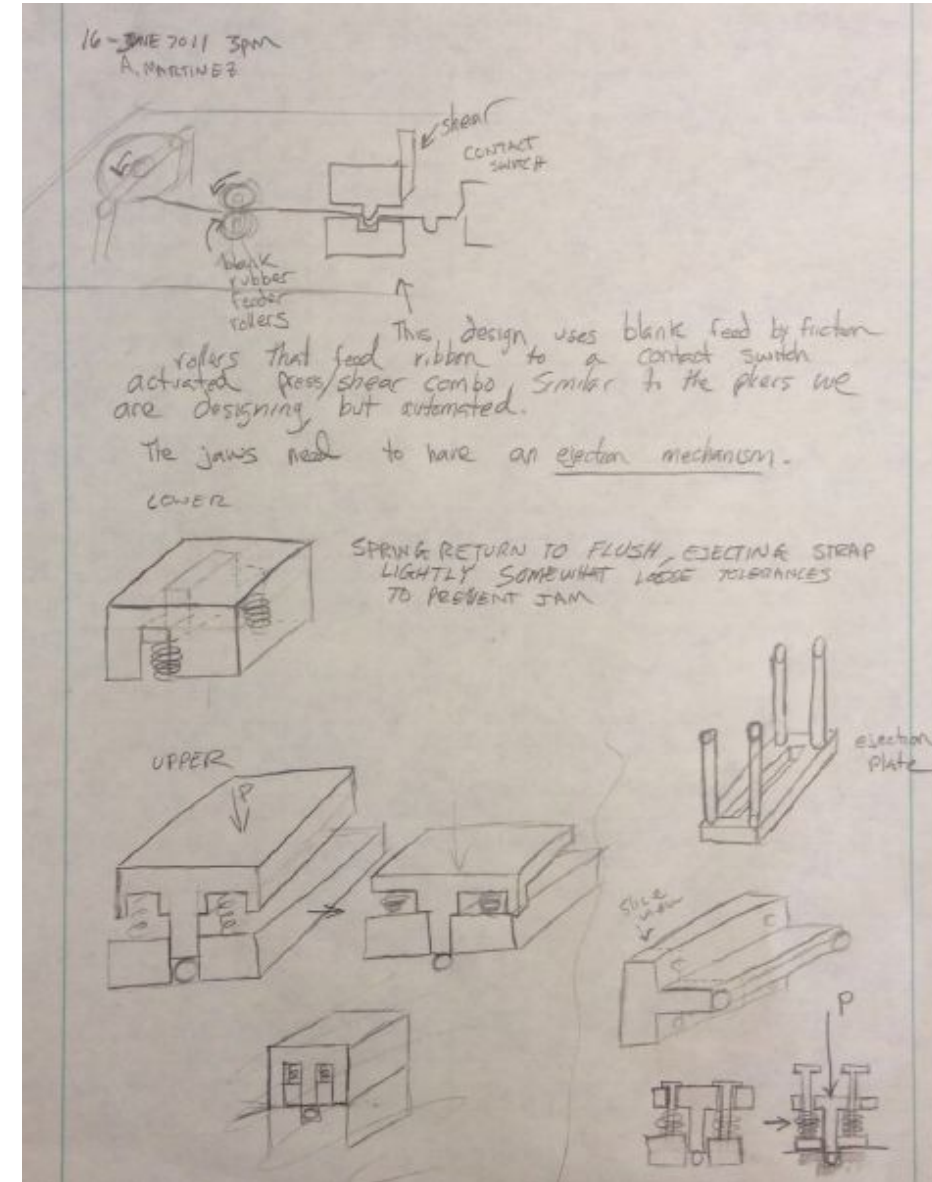 16-JUNE 2011 3pm
A. MARTINEZ
shear
CONTACT
SWITCH
blank
rubber
feeder
rollers
This design uses blank feed by friction
rollers that feed ribbon to a contact switch
actuated press/shear combo. Similar to the pliers we
are designing, but automated.
The jaws need to have an ejection mechanism.
LOWER
SPRING RETURN TO FLUSH, EJECTING STRAP
LIGHTLY SOMEWHAT LOOSE TOLERANCES
TO PREVENT JAM
ejection
plate
UPPER
P
slice
view
P